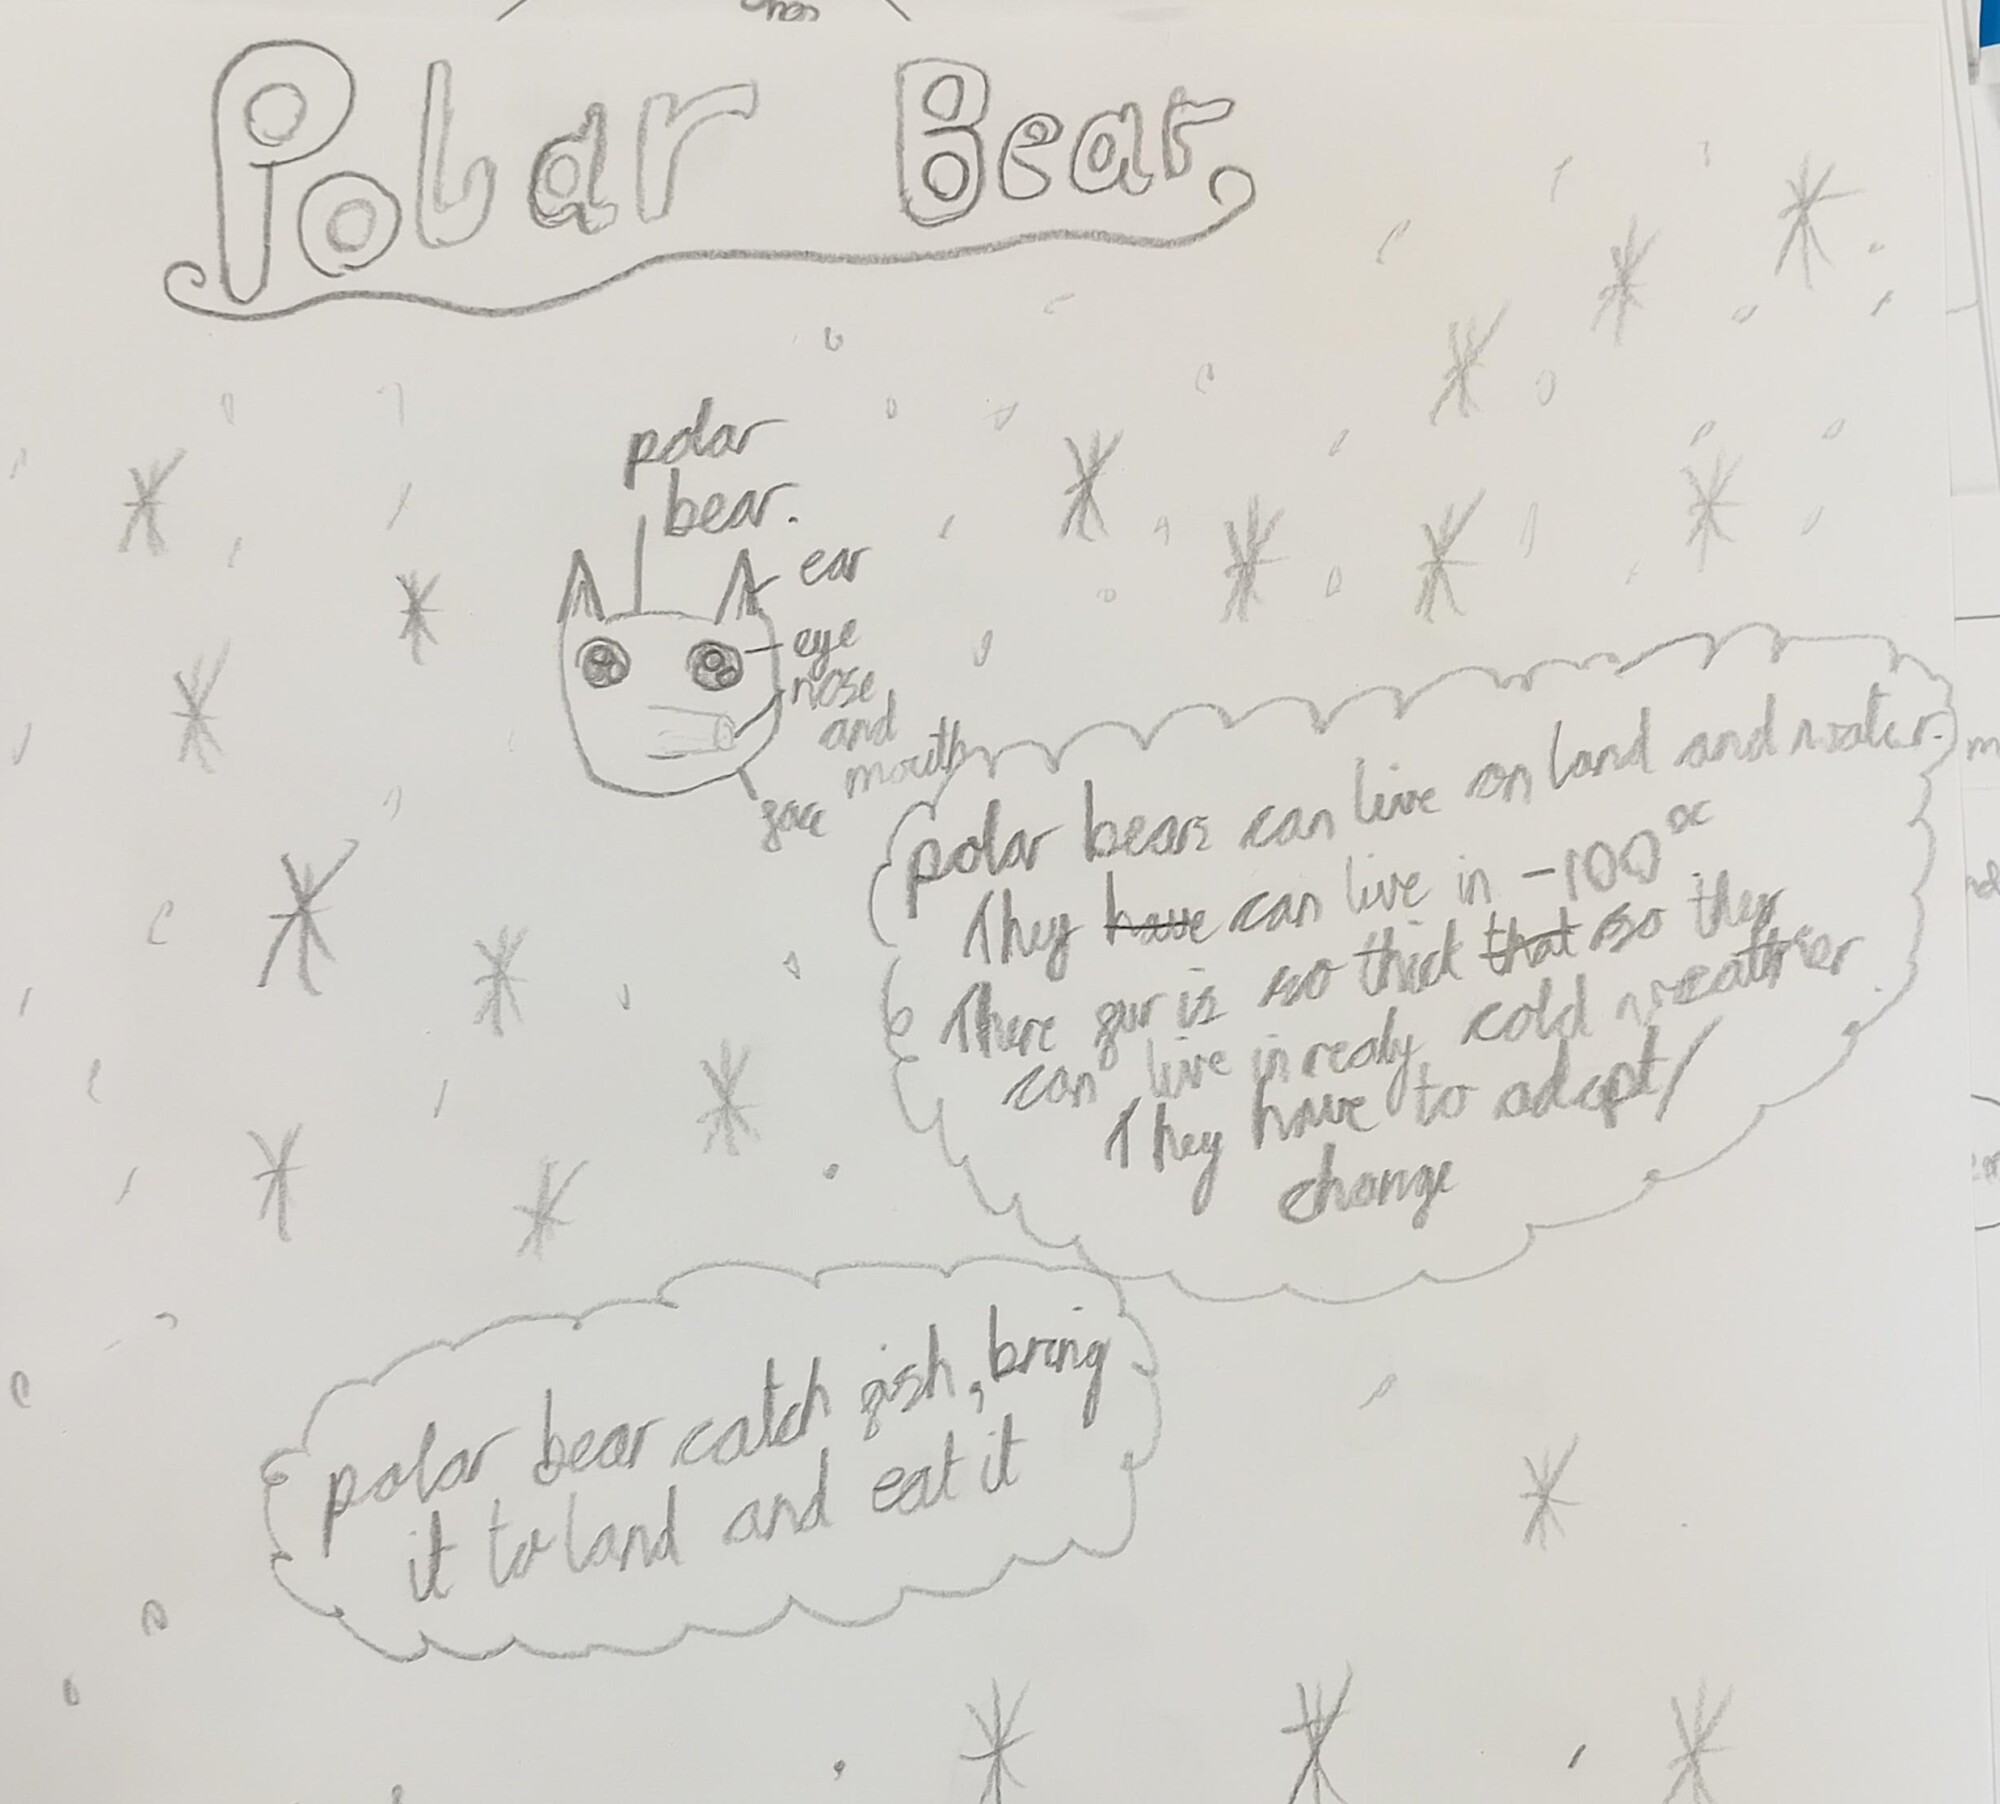 Polar Bear
polar
bear.
ear
eye
nose
and
mouth
face
polar bears can live on land and water.
They have can live in -100°c
There fur is so thick that so they
can live in realy cold weather
They have to adapt/
change
polar bear catch fish, bring
it to land and eat it